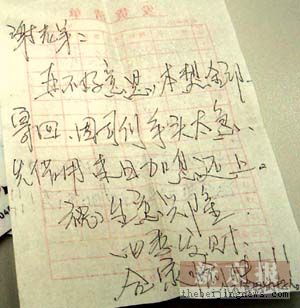 谢老弟：
真不好意思，本想全部
寄回，因目前手头太急、
先借用来日加息还上。
祝：生意兴隆
四季发财
合家
新京报
www.thebeijingnews.com